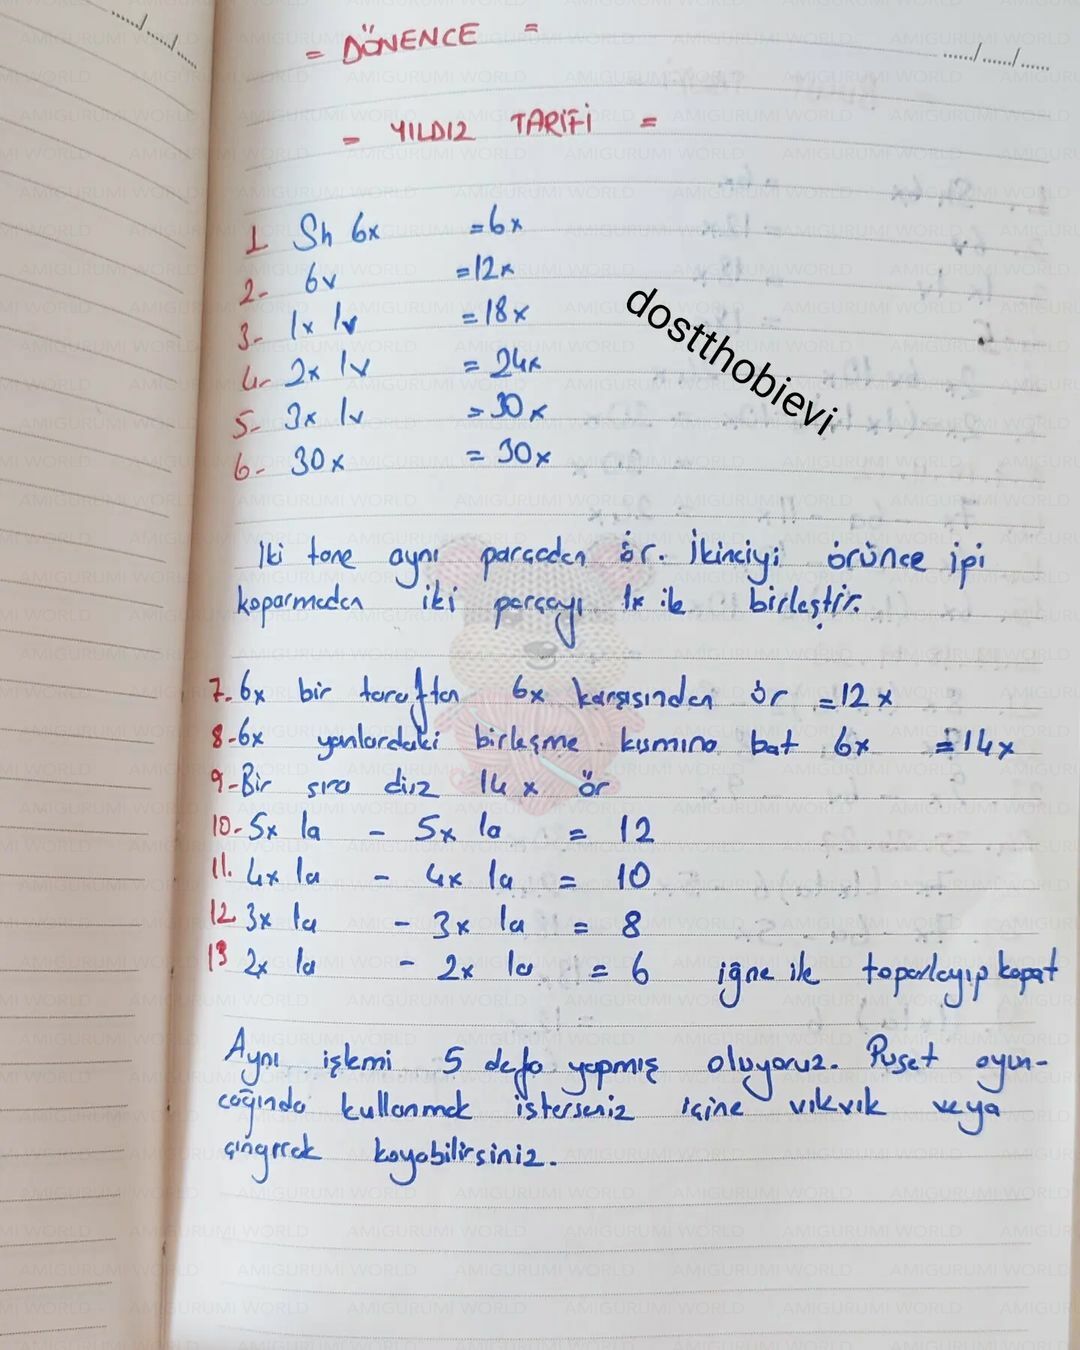 = DÖNENCE =
= YILDIZ TARİFİ =
1 Sh 6x =6x
2- 6v =12x
3- 1x 1v =18x
4- 2x 1v = 24x
5- 3x 1v = 30x
6- 30x = 30x
dostthobievi
İki tane aynı parçadan ör. İkinciyi örünce ipi
koparmadan iki parçayı 1x ile birleştir.
7- 6x bir taraftan 6x karşısından ör =12x
8-6x yanlardaki birleşme kısmına bat 6x =14x
9-Bir sıra düz 14x ör
10- 5x 1a - 5x 1a = 12
11. 4x 1a - 4x 1a = 10
12 3x 1a - 3x 1a = 8
13 2x 1a - 2x 1a = 6 iğne ile toparlayıp kapat
Aynı işlemi 5 defa yapmış oluyoruz. Puset oyun-
cağında kullanmak isterseniz içine vıkvık veya
çıngırak koyabilirsiniz.
AMIGURUMI WORLD